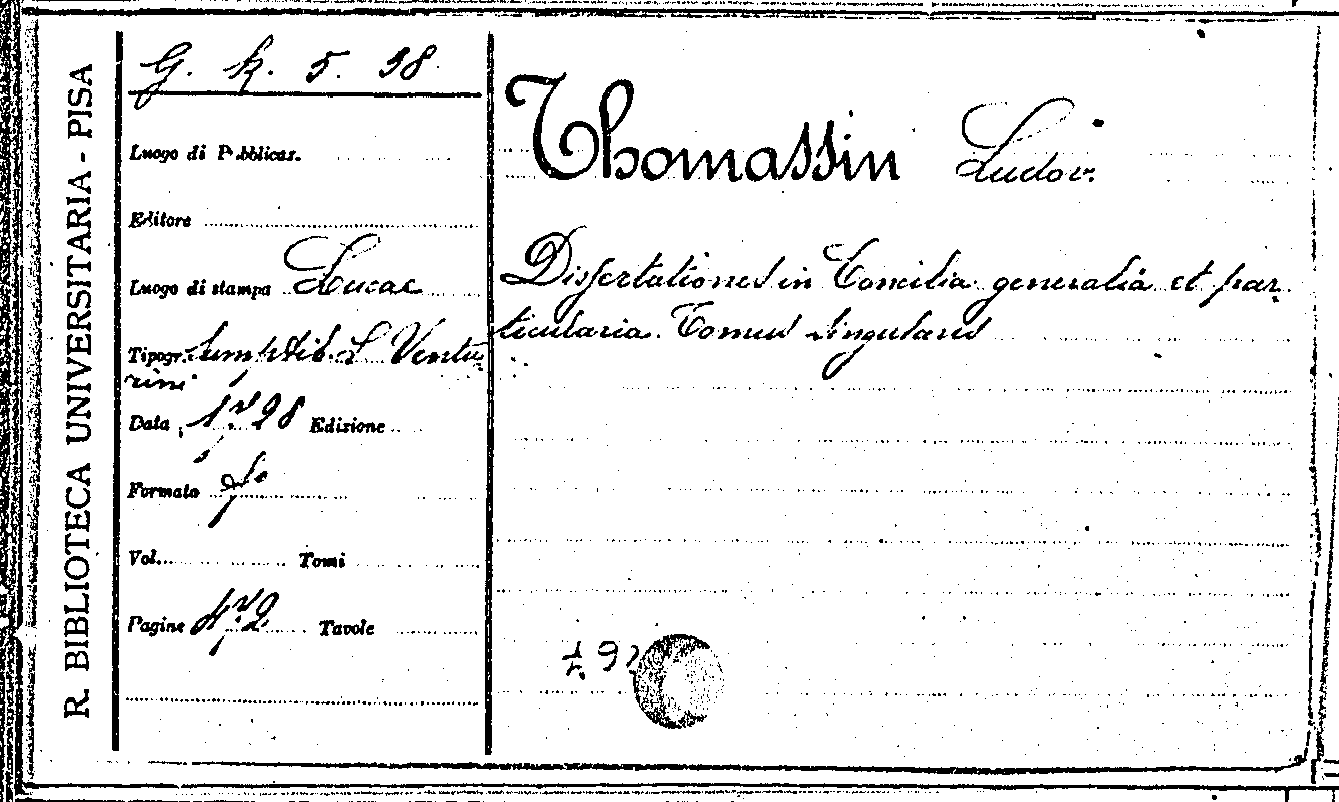 R. BIBLIOTECA UNIVERSITARIA - PISA
G. k. 5. 38
Luogo di Pubblicaz.
Editore
Luogo di stampa Lucae
Tipogr. Sumptib. L. Ventu-
rini
Data 1728 Edizione
Formato f°
Vol. Tomi
Pagine 472 Tavole
Thomassin Ludov.
Dissertationes in Concilia generalia et par-
ticularia. Tomus singularis